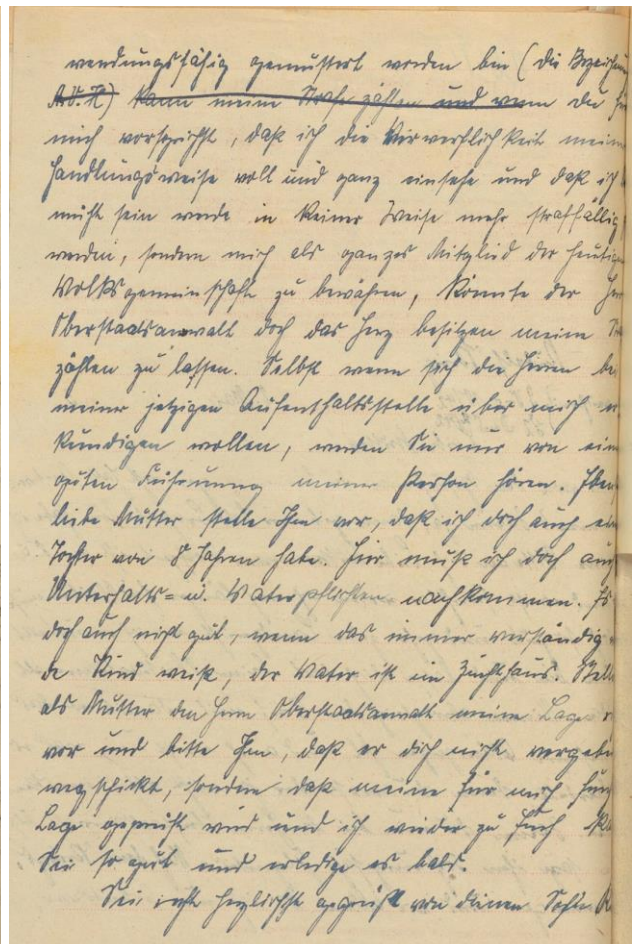 wendungsfähig gemustert worden bin (die Bezeichn
A.v.K) kann meine Strafe zählen und wenn du
mich vorsprichst, daß ich die Verwerflichkeit mein
Handlungsweise voll und ganz einsehe und daß ich
müht sein werde in keiner Weise mehr straffällig
werden, sondern mich als ganzes Mitglied der heutig
Volksgemeinschaft zu bewähren, könnte der Her
Oberstaatsanwalt doch das Herz besitzen meine
zählen zu lassen. Selbst wenn sich die Herren be
meiner jetzigen Aufenthaltsstelle über mich
kundigen wollen, werden Sie nur von ein
guten Führung meiner Person hören. Eben
liebe Mutter stelle Ihm vor, daß ich doch auch ein
Tochter von 8 Jahren habe. Hier muß ich doch auch
Unterhalts= u. Vaterpflichten nachkommen. Es
doch auch nicht gut, wenn das immer verständig
de Kind weiß, der Vater ist im Zuchthaus. Stell
als Mutter den Herrn Oberstaatsanwalt meine Lage
vor und bitte Ihm, daß er dich nicht vergebe
wegschickt, sondern daß meine für mich
Lage geprüft wird und ich wieder zu Euch
Sei so gut und erledige es bald.
Sei recht herzlichst gegrüßt von deinen Sohn